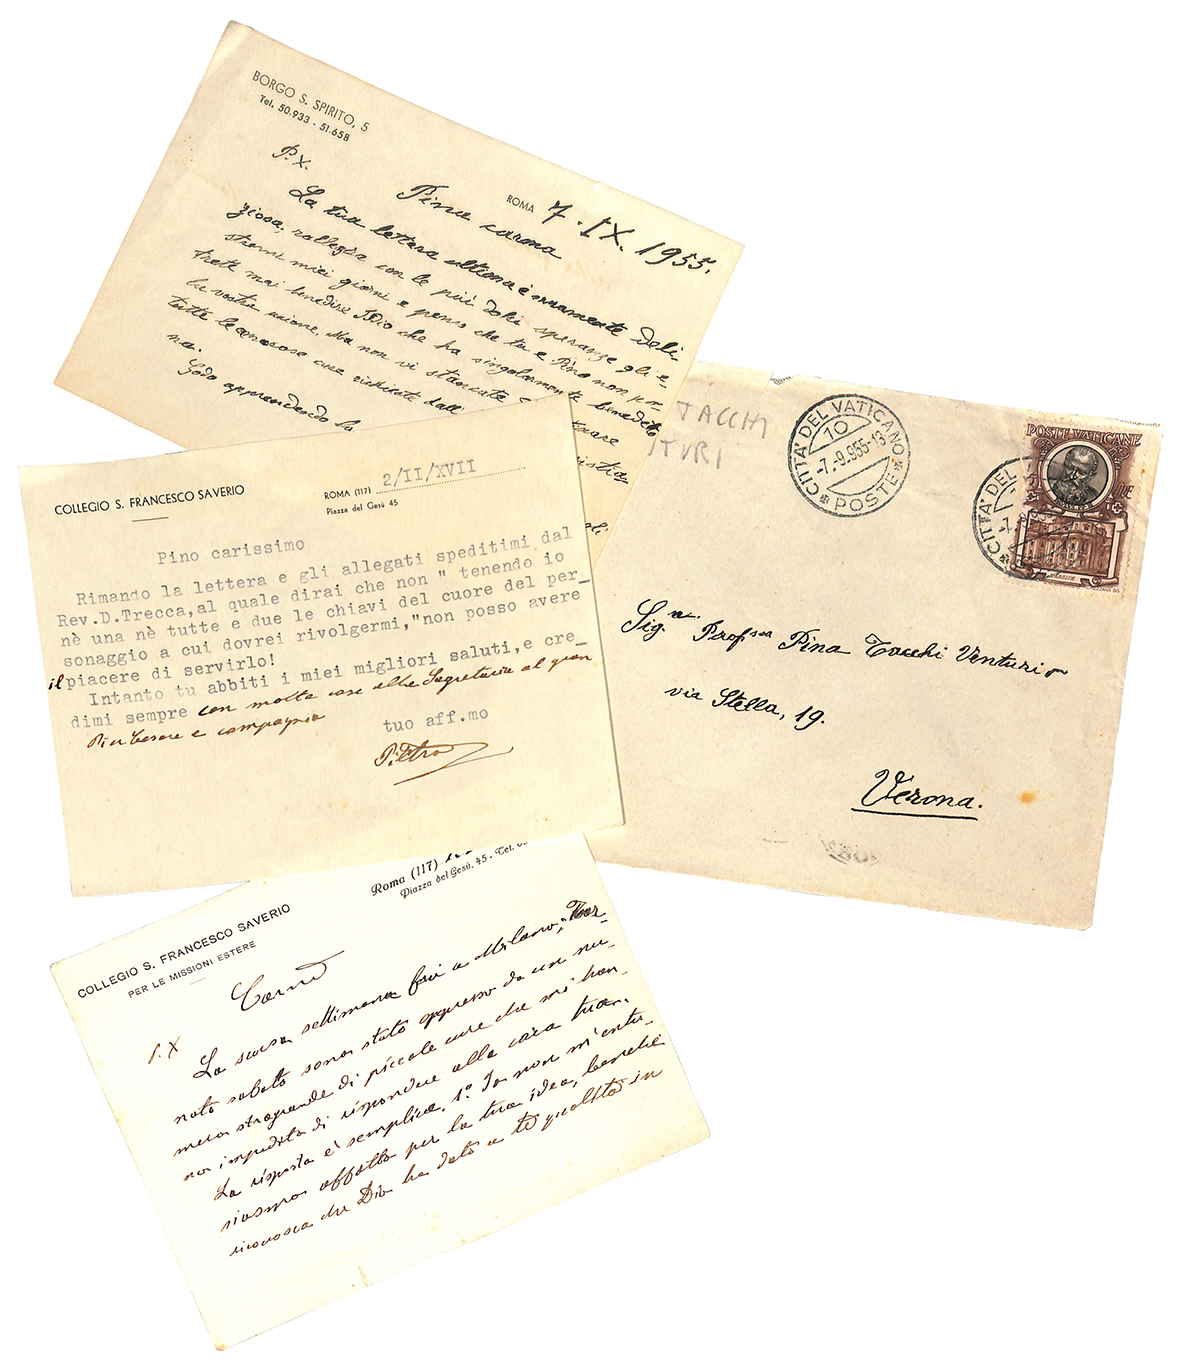 BORGO S. SPIRITO, 5
Tel. 50.933 - 51.658
P.X.
ROMA 7-IX.1955.
Pina carona
La tua lettera ultima è veramente deli-
ziosa, rallegra con le più dolci speranze gli e-
stremi miei giorni e penso che tu e Pino non po-
trete mai benedire Iddio che ha singolarmente benedetto
la vostra unione. Ma non vi stancate
tutte le amorose cure richieste dall'
na.
Godo apprendendo la
TACCHI
TURI
CITTA' DEL VATICANO
10
-7.-9.955-13
POSTE
CITTA' DEL
POSTE VATICANE
Sig.na Prof.ssa Pina Tacchi Venturi
via Stella, 19.
Verona.
COLLEGIO S. FRANCESCO SAVERIO
ROMA (117) 2/II/XVII
Piazza del Gesú 45
Pino carissimo
Rimando la lettera e gli allegati speditimi dal
Rev.D.Trecca,al quale dirai che non " tenendo io
nè una nè tutte e due le chiavi del cuore del per_
sonaggio a cui dovrei rivolgermi,"non posso avere
il piacere di servirlo!
Intanto tu abbiti i miei migliori saluti,e cre_
dimi sempre con molte cose alla Segreteria al gran
Pier Cesare e compagnia
tuo aff.mo
Pietro
COLLEGIO S. FRANCESCO SAVERIO
PER LE MISSIONI ESTERE
Roma (117)
Piazza del Gesú, 45 - Tel.
P.X
La scorsa settimana fui a Milano; Tor-
nato sabato sono stato oppresso da un nu-
mero stragrande di piccole cure che mi han-
no impedito di rispondere alla cara tua.
La risposta è semplice. 1.° Io non m'entu-
siasmo affatto per la tua idea, benchè
riconosca che Dio ha dato a te qualità in